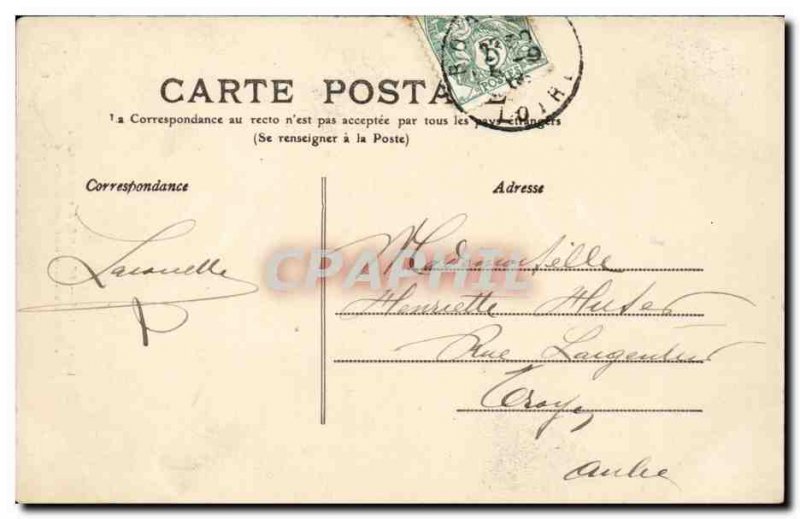 CARTE POSTALE
La Correspondance au recto n'est pas acceptée par tous les pays étrangers
(Se renseigner à la Poste)
Correspondance
Adresse
CPAPHIL
Mademoiselle
Henriette
Rue Largentier
Troyes
Aube
LOIRE